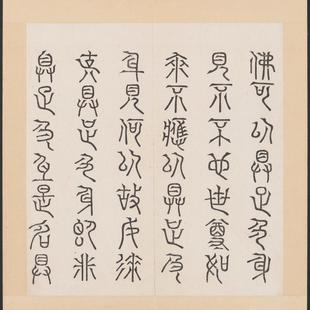 佛可以具足色身
見不不也世尊如
來不應以具足色
身見何以故如來
說具足色身即非
具足色身是名具